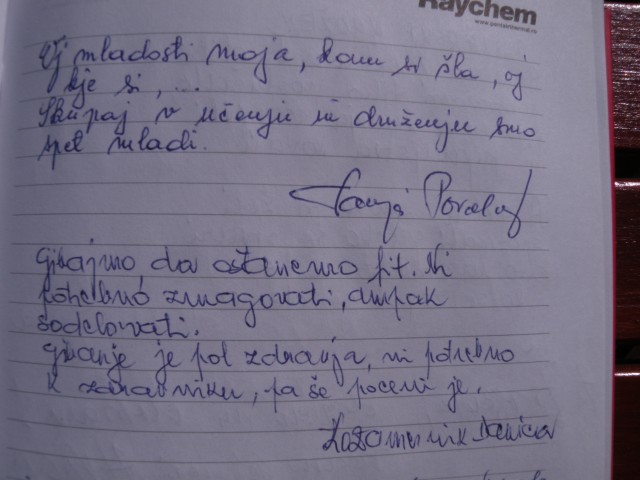 Raychem
Oj mladosti moja, kam si šla, oj
kje si, ...
Skupaj v učenju in druženju smo
spet mladi.
Tanja
Gibajmo, da ostanemo fit. Ni
potrebno zmagovati, ampak
sodelovati.
Gibanje je pol zdravja, ni potrebno
k zdravniku, pa še poceni je.
Danica